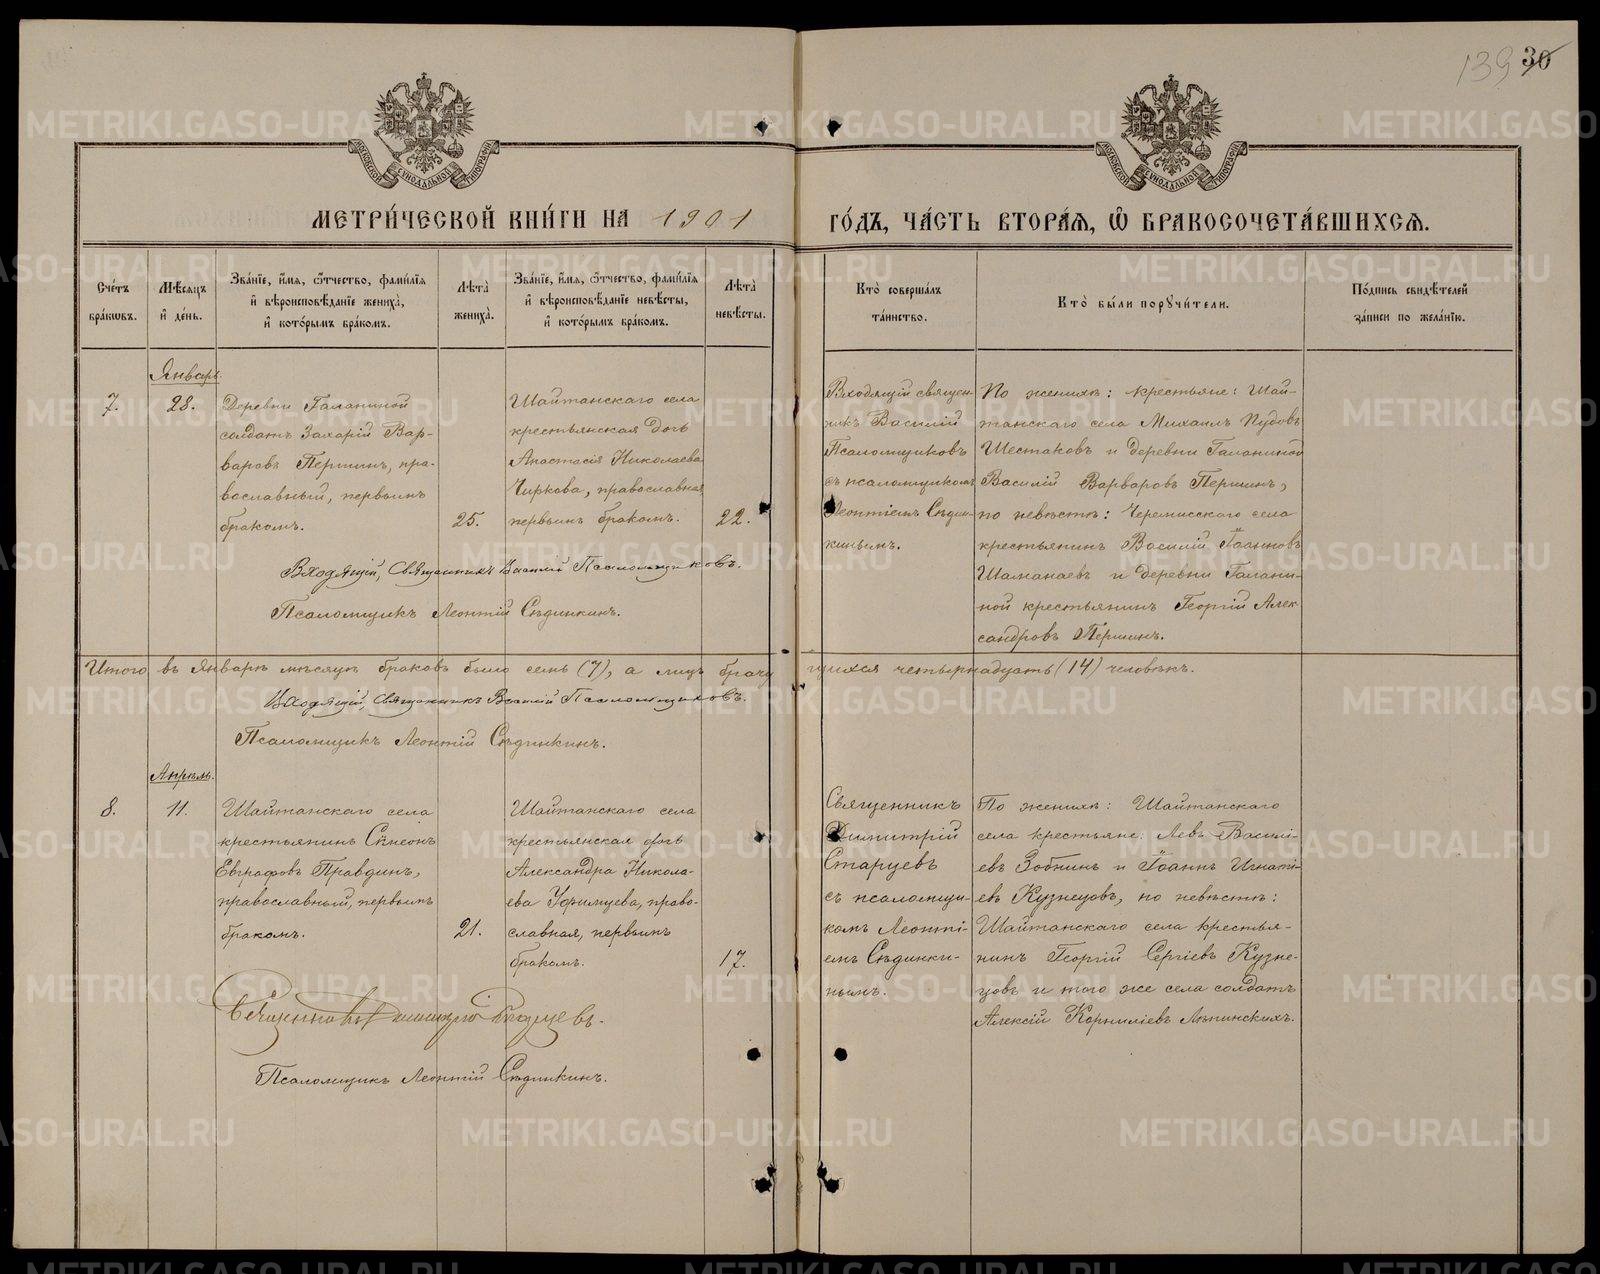 139 30
МЕТРИ́ЧЕСКОЙ КНИ́ГИ НА 1901 ГО́ДЪ, ЧА́СТЬ ВТОРА́Ѧ, Ѽ БРАКОСОЧЕТА́ВШИХСѦ.
Сче́тъ бра́кѡвъ.
Мѣ́сяцъ и҆ де́нь.
Зва́нїе, и҆́мя, ѻ҆́тчество, фами́лїя
и҆ вѣроисповѣ́данїе жениха̀,
и҆ кото́рымъ бра́комъ.
Лѣта̀ жениха̀.
Зва́нїе, и҆́мя, ѻ҆́тчество, фами́лїя
и҆ вѣроисповѣ́данїе невѣ́сты,
и҆ кото́рымъ бра́комъ.
Лѣта̀ невѣ́сты.
Кто̀ соверша́лъ
та́инство.
Кто̀ бы́ли поручи́тели.
По́дпись свидѣ́телей
за́писи по жела́нїю.
Январь.
7. 28.
Деревни Галаниной
солдатъ Захарій Вар-
варовъ Першинъ, пра-
вославный, первымъ
бракомъ.
25.
Шайтанскаго села
крестьянская дочь
Анастасія Николаева
Чиркова, православная,
первымъ бракомъ.
22.
Входящій священ-
никъ Василій
Псаломщиковъ
съ псаломщикомъ
Леонтіемъ Сѣдин-
кинымъ.
По женихѣ: крестьяне: Шай-
танскаго села Михаилъ Пудовъ
Шестаковъ и деревни Галаниной
Василій Варваровъ Першинъ,
по невѣстѣ: Черемисскаго села
крестьянинъ Василій Іоанновъ
Шаманаевъ и деревни Галани-
ной крестьянинъ Георгій Алек-
сандровъ Першинъ.
Входящій, Священникъ Василій Псаломщиковъ.
Псаломщикъ Леонтій Сѣдинкинъ.
Итого въ Январѣ мѣсяцѣ браковъ было семь (7), а лицъ брачущихся четырнадцать (14) человѣкъ.
Входящій, Священникъ Василій Псаломщиковъ.
Псаломщикъ Леонтій Сѣдинкинъ.
Апрѣль.
8. 11.
Шайтанскаго села
крестьянинъ Сѵмеонъ
Евграфовъ Правдинъ,
православный, первымъ
бракомъ.
21.
Шайтанскаго села
крестьянская дочь
Александра Никола-
ева Уфимцева, право-
славная, первымъ
бракомъ.
17.
Священникъ
Димитрій
Старцевъ
съ псаломщи-
комъ Леонті-
емъ Сѣдинки-
нымъ.
По женихѣ: Шайтанскаго
села крестьяне: Левъ Василі-
евъ Зобнинъ и Іоаннъ Игнаті-
евъ Кузнецовъ, по невѣстѣ:
Шайтанскаго села крестья-
нинъ Георгій Сергіевъ Кузне-
цовъ и того же села солдатъ
Алексій Корниліевъ Ляпинскихъ.
Священникъ Димитрій Старцевъ.
Псаломщикъ Леонтій Сѣдинкинъ.
METRIKI.GASO-URAL.RU